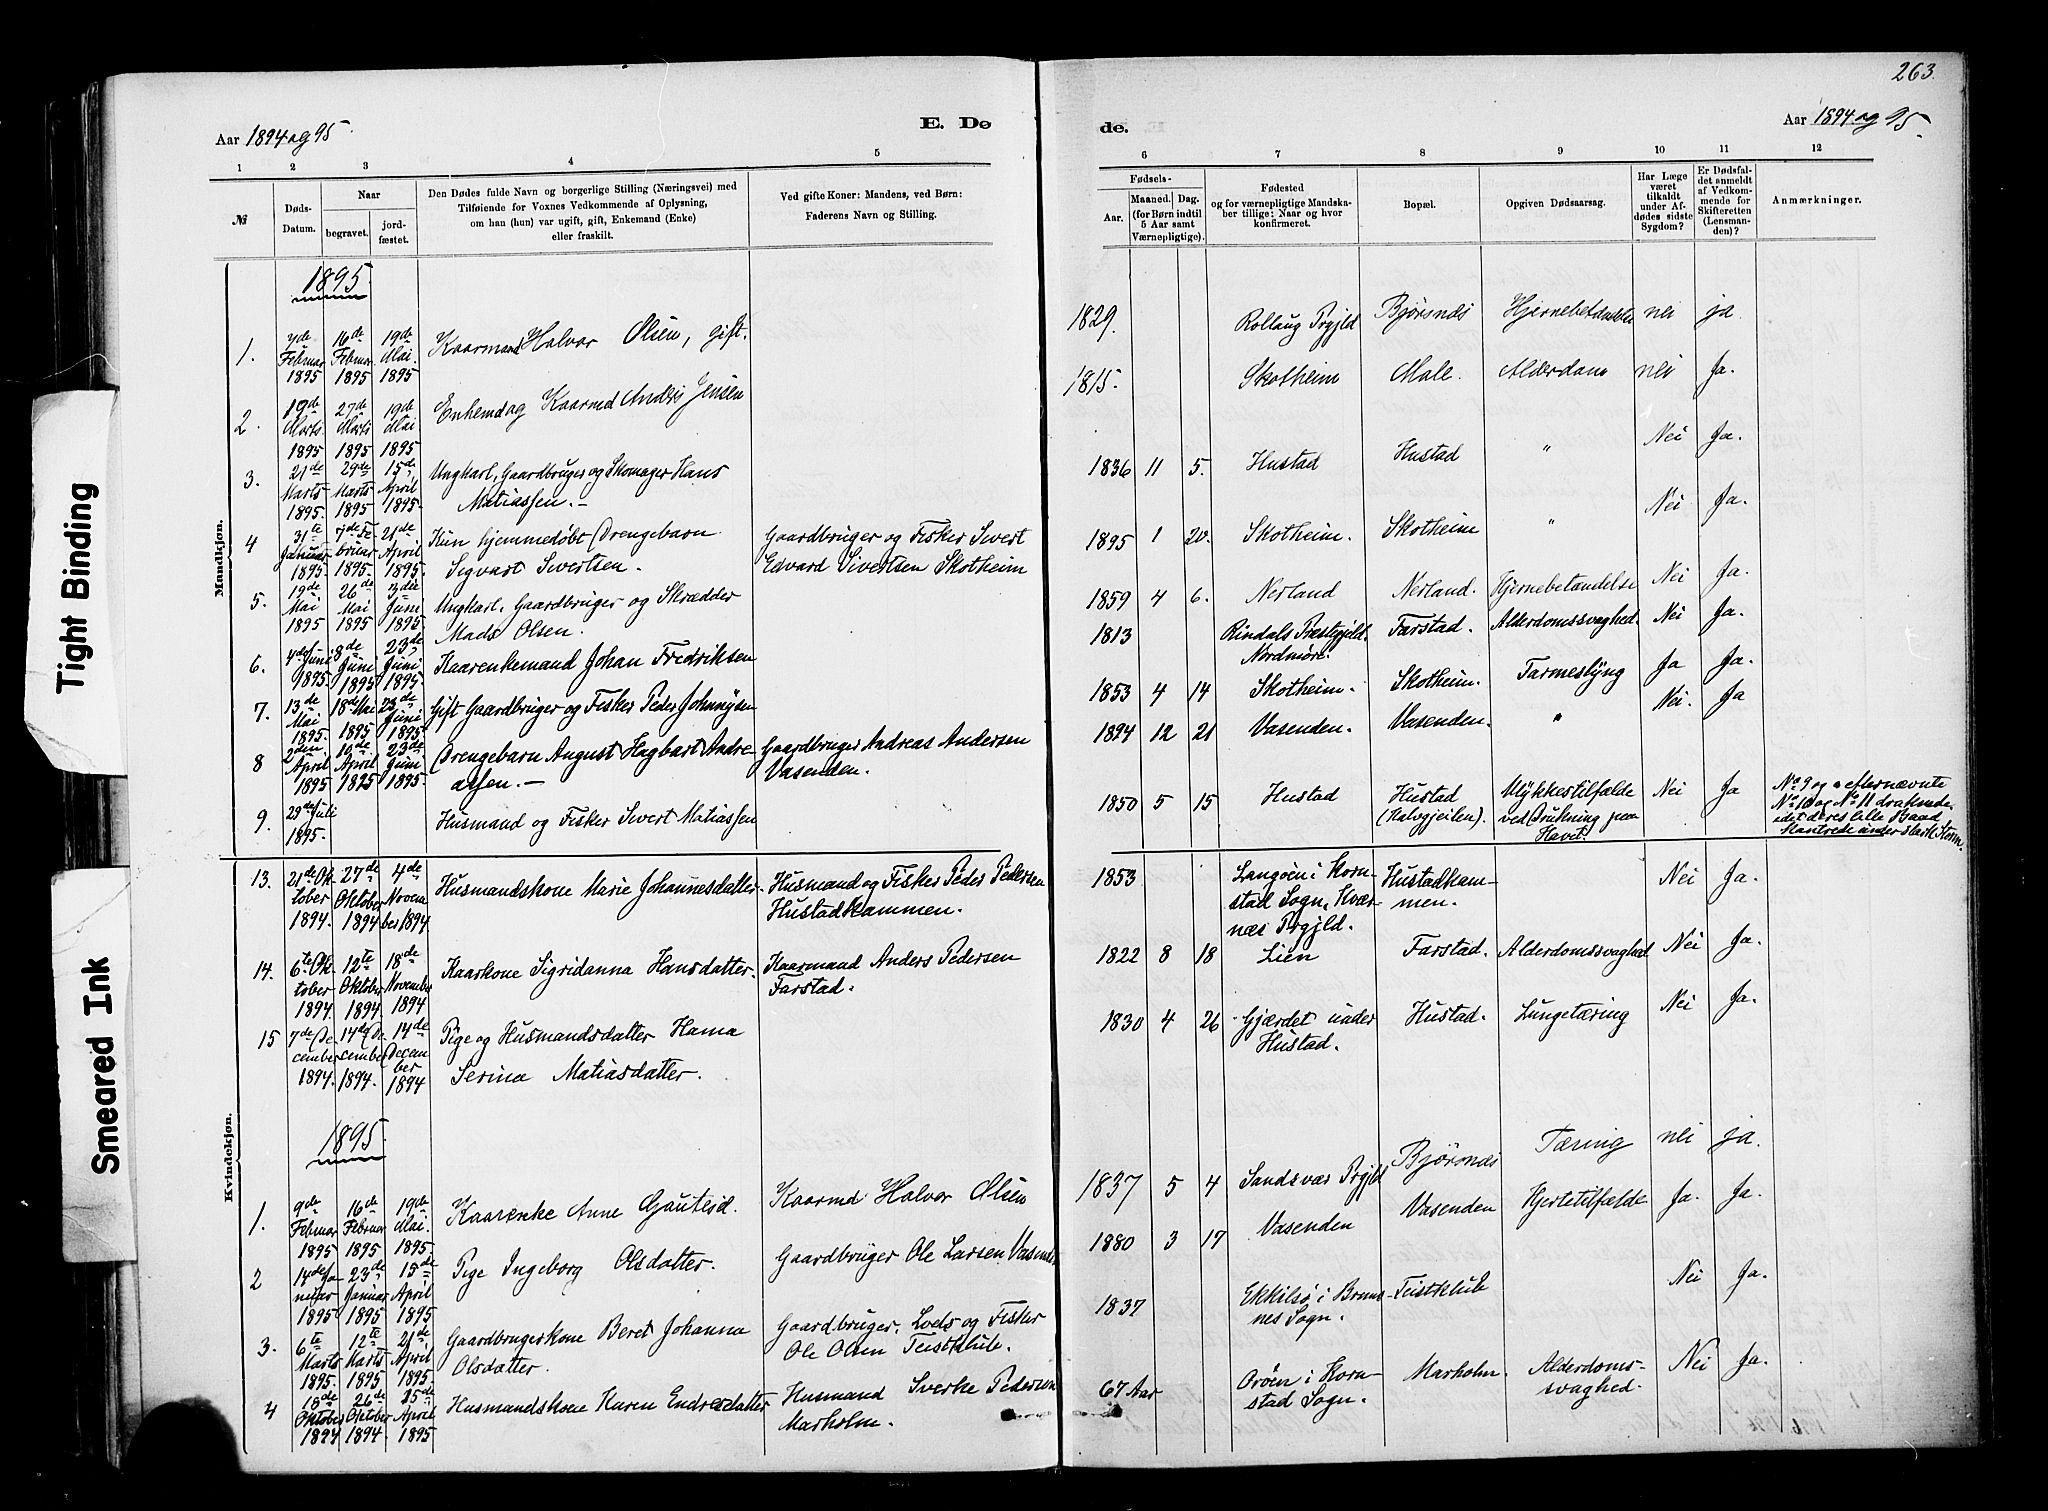 263.
Aar 1894 og 95.
E. De
de.
Aar 1894 og 95.
1 2 3 4 5 6 7 8 9 10 11 12
№
Døds-Datum.
Naar
begravet.
jord-fæstet.
Den Dødes fulde Navn og borgerlige Stilling (Næringsvei) med
Tilføiende for Voxnes Vedkommende af Oplysning,
om han (hun) var ugift, gift, Enkemand (Enke)
eller fraskilt.
Ved gifte Koner: Mandens, ved Børn:
Faderens Navn og Stilling.
Fødsels-
Aar.
Maaned. Dag.
(for Børn indtil
5 Aar samt
Værnepligtige).
Fødested
og for værnepligtige Mandska-
ber tillige: Naar og hvor
konfirmeret.
Bopæl.
Opgiven Dødsaarsag.
Har Læge
været
tilkaldt
under Af-
dødes sidste
Sygdom?
Er Dødsfal-
det anmeldt
af Vedkom-
mende for
Skifteretten
(Lensman-
den)?
Anmærkninger.
Mandkjøn.
1895.
1. 7de Februar 1895 16de Februar 1895 19de Mai 1895 Kaarmand Halvor Olsen, gift. 1829. Rollaug Prgjld Bjørsnes Hjernebetændelse nei ja
2. 19de Marts 1895 27de Marts 1895 19de Mai 1895 Enkemd og Kaarmd Anders Jensen 1815. Skotheim Male. Alderdom nei Ja.
3. 21de Marts 1895 29de Marts 1895 15de April 1895. Ungkarl, Gaardbruger og Skomager Hans
Matiassen.— 1836 11 5. Hustad Hustad " Nei Ja.
4 31te Januar 1895. 7de Februar 1895. 21de April 1895. Kun hjemmedøbt Drengebarn
Sigvart Sivertsen. Gaardbruger og Fisker Sivert
Edvard Sivertsen Skotheim 1895 1 20. Skotheim. Skotheim " Nei Ja.
5. 19de Mai 1895 26de Mai 1895 3die Juni 1895. Ungkarl, Gaardbruger og Skrædder
Mads Olsen. 1859 4 6. Nerland Nerland. Hjernebetændelse Nei Ja.
6. 4de Juni 1895. 8de Juni 1895 23de Juni 1895. Kaarenkemand Johan Fredriksen 1813 Rindals Præstegjeld.
Nordmøre. Farstad. Alderdomssvaghed Nei Ja.
7. 13de Mai 1895. 18de Mai 1895 23de Juni 1895. Gift Gaardbruger og Fisker Peder Johnnysen 1853 4 14 Skotheim. Skotheim. Tarmeslyng Ja Ja.
8 2den April 1895 10de April 1895 23de Juni 1895. Drengebarn August Hagbart Andre-
assen.— Gaardbruger Andreas Andersen
Vasenden. 1894 12 21 Vasenden. Vasenden. " Nei. Ja
9. 29de Juli 1895. Husmand og Fisker Sivert Matiassen 1850 5 15 Hustad Hustad
(Kalvgjeilen) Ulykkestilfælde
ved Drukning paa
Havet. Nei Ja No 9 og efternævnte
No 10 og No 11 druknede,
idet deres lille Baad
kantrede under stærk Storm.
Kvindekjøn.
13. 21de Oktober 1894. 27de Oktober 1894 4de November 1894 Husmandskone Marie Johannesdatter. Husmand og Fisker Peder Pedersen
Hustadkammen. 1853 Langøen i Korn-
stad Sogn, Kvær-
næs Prgjld. Hustadkam-
men. Nei Ja.
14. 6te Oktober 1894. 12te Oktober 1894 18de November 1894 Kaarkone Sigridanna Hansdatter. Kaarmand Anders Pedersen
Farstad. 1822 8 18 Lien Farstad. Alderdomssvaghed Nei Ja.
15 7de December 1894. 14de December 1894. 14de December 1894 Pige og Husmandsdatter Hanna
Serine Matiasdatter. 1830 4 26 Gjærdet under
Hustad. Hustad. Lungetæring Nei Ja.
1895.
1. 9de Februar 1895 16de Februar 1895 19de Mai. 1895. Kaarenke Anne Gautesd. Kaarmd Halvor Olsen 1837 5 4 Sandsvær Prgjld Bjørsnæs Tæring nei ja.
2 14de Januar 1895 23de Januar 1895 15de April 1895 Pige Ingeborg Olsdatter. Gaardbruger Ole Larsen Vasenden 1880 3 17 Vasenden Vasenden Hjertetilfælde Ja. Ja.
3. 6te Marts 1895. 12te Marts 1895 21de April 1895 Gaardbrugerkone Beret Johanna
Olsdatter. Gaardbruger, Lods og Fisker
Ole Olsen Teistklub. 1837 Ekkilsø i Brems-
nes Sogn. Teistklub Nei Ja.
4 18de Oktober 1894 26de Oktober 1894. 25de April 1895 Husmandskone Karen Endresdatter Husmand Sverke Pedersen
Marholm. 67 Aar Orøen i Korn-
stad Sogn. Marholm. Alderdoms-
svaghed. Nei Ja.
Tight Binding
Smeared Ink